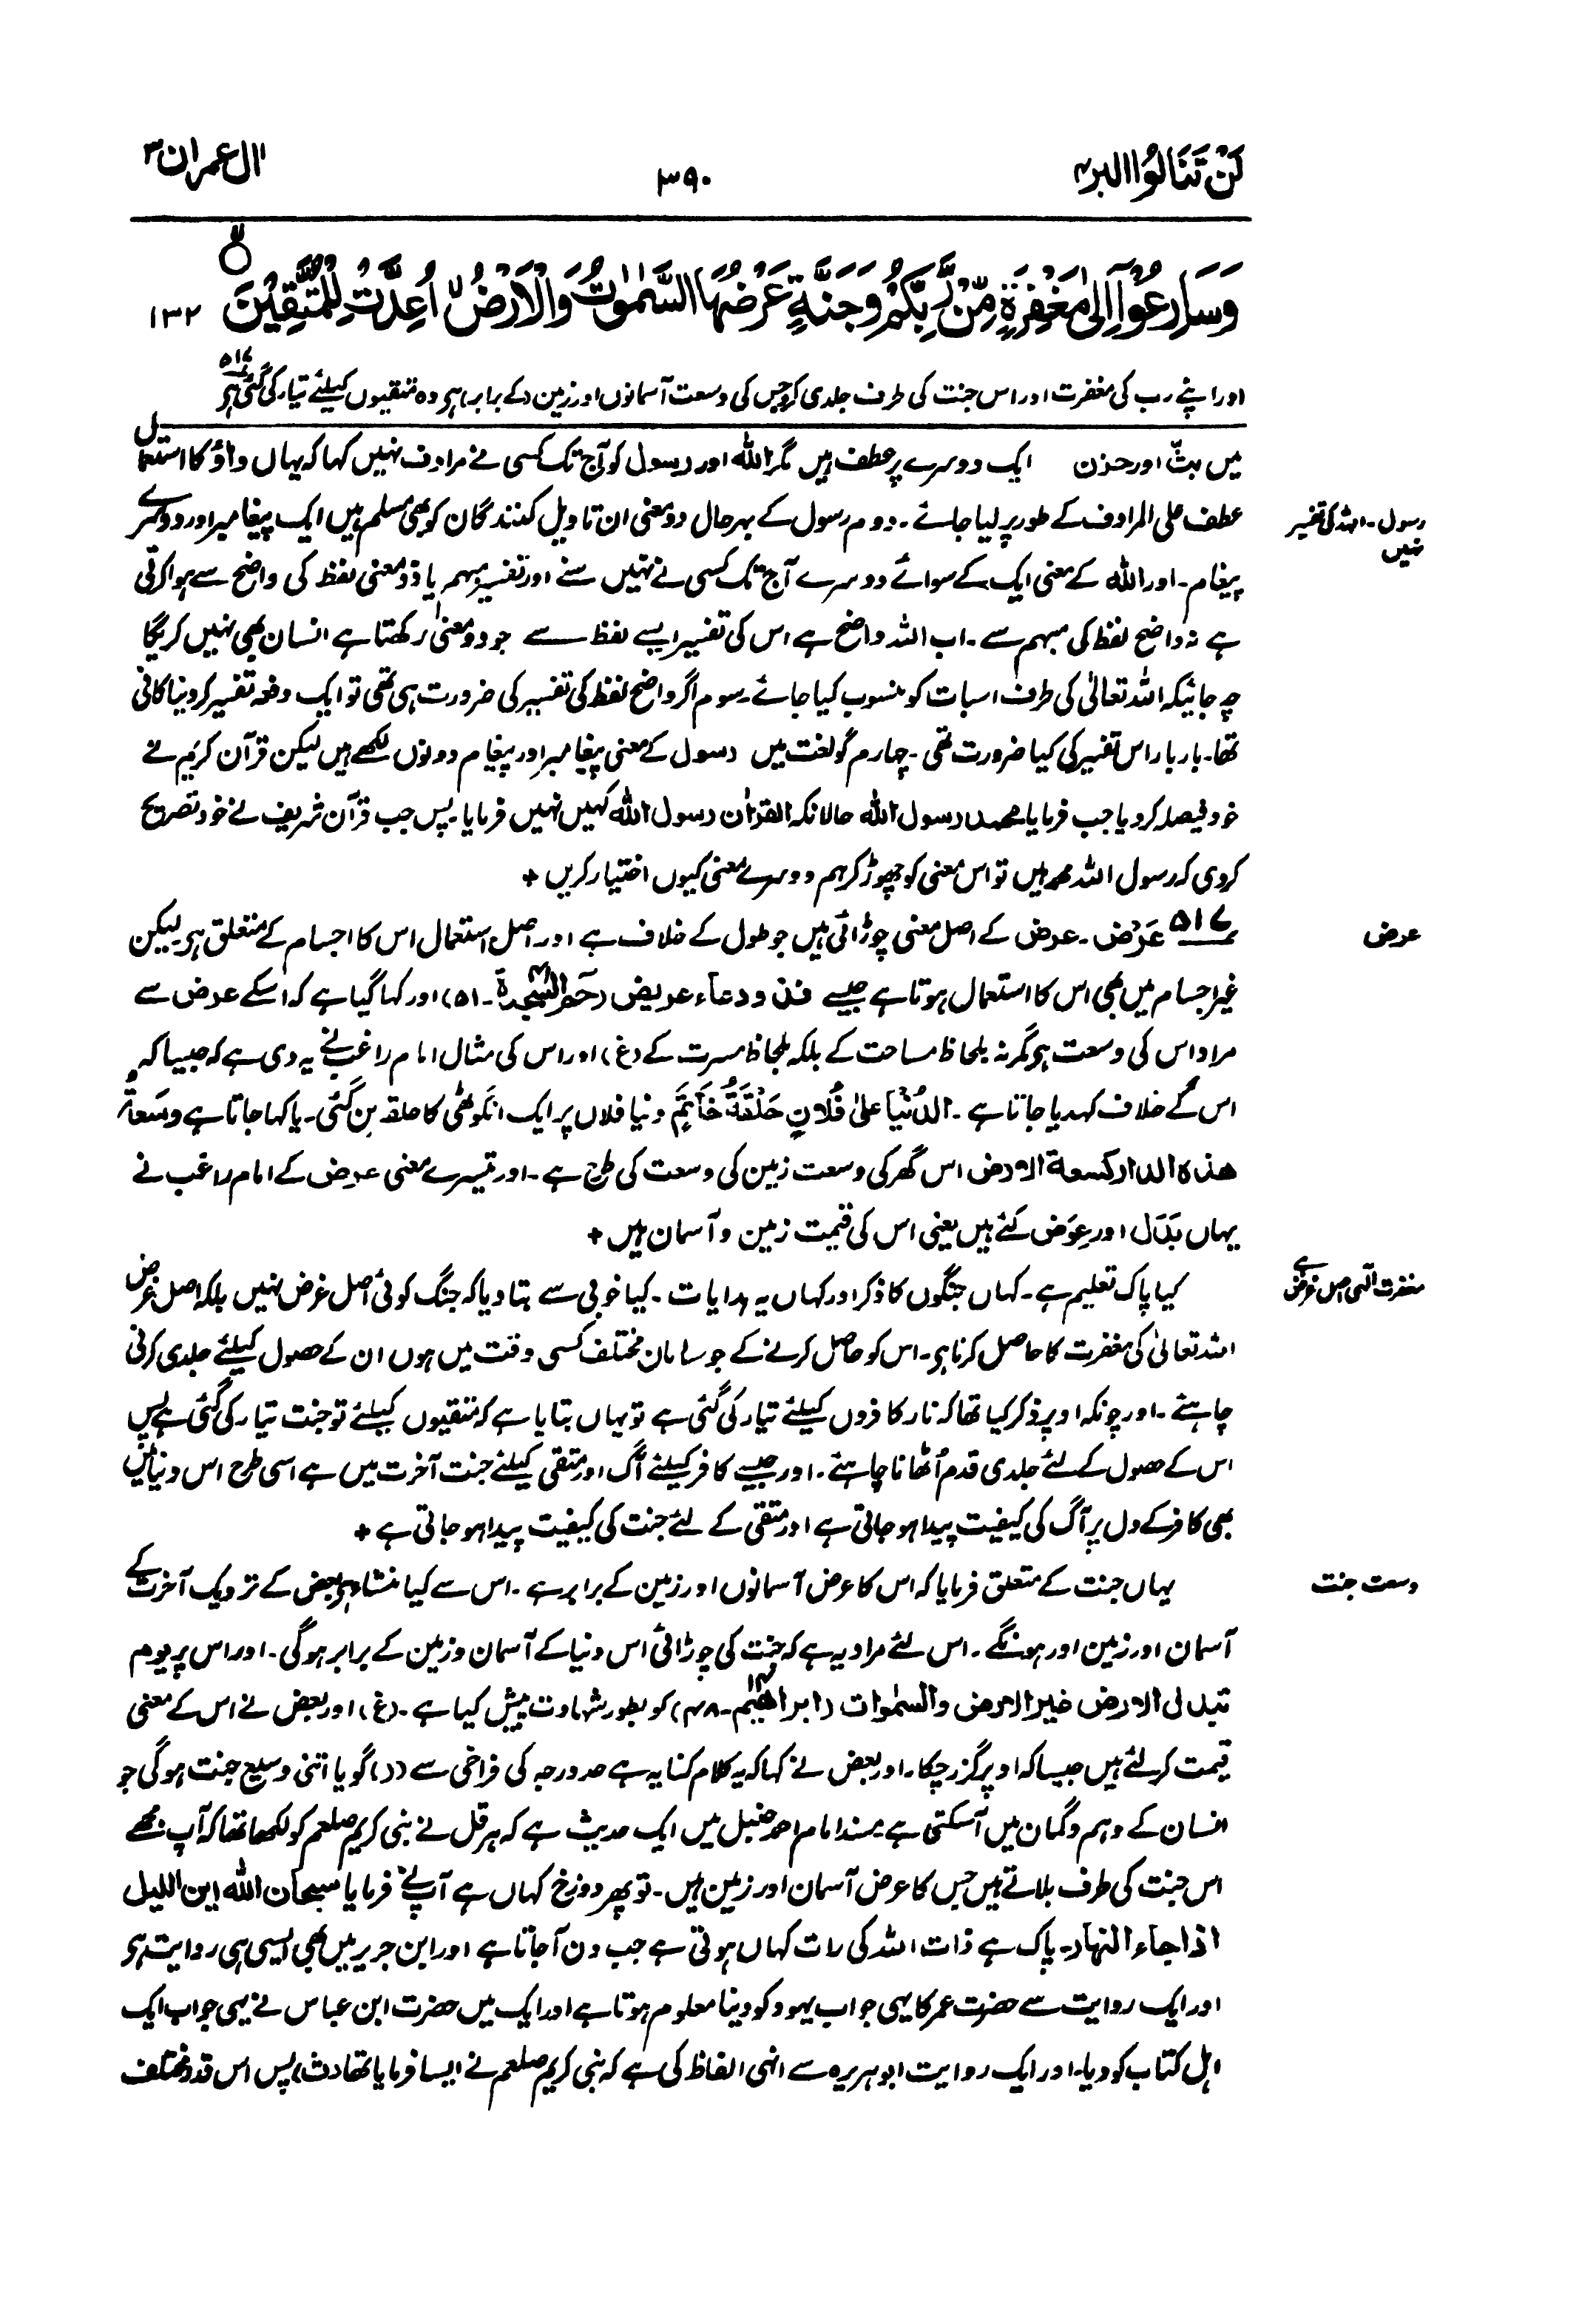 لَنْ تَنَالُوا البر ۴
۳۹۰
اٰل عمران ۳
وَسَارِعُوْٓا اِلٰى مَغْفِرَةٍ مِّنْ رَّبِّكُمْ وَجَنَّةٍ عَرْضُهَا السَّمٰوٰتُ وَالْاَرْضُ ۙ اُعِدَّتْ لِلْمُتَّقِيْنَ ۱۳۲
اور اپنے رب کی مغفرت اور اس جنت کی طرف جلدی کرو جس کی وسعت آسمانوں اور زمین کے برابر ہے وہ متقیوں کیلئے تیار کی گئی ہے ۵۱۷
میں بثّ اور حزن ایک دوسرے پر عطف ہیں مگر اللہ اور رسول کو آج تک کسی نے مرادف نہیں کہا کہ یہاں واؤ کا استعمال
رسول۔ اللہ کی تفسیر نہیں
عطف علی المرادف کے طور پر لیا جائے۔ دوم رسول کے بہرحال دو معنی ان تاویل کنندگان کو بھی مسلم ہیں ایک پیغامبر اور دوسرے
پیغام۔ اور اللہ کے معنی ایک کے سوائے دوسرے آج تک کسی نے نہیں سنے اور تفسیر مبہم یا ذو معنی لفظ کی واضح سے ہوا کرتی
ہے نہ واضح لفظ کی مبہم سے۔ اب اللہ واضح ہے اس کی تفسیر ایسے لفظ سے جو دو معنی رکھتا ہے انسان بھی نہیں کریگا
چہ جائیکہ اللہ تعالٰی کی طرف اسبات کو منسوب کیا جائے۔ سوم اگر واضح لفظ کی تفسیر کی ضرورت ہی تھی تو ایک دفعہ تفسیر کر دینا کافی
تھا۔ بار بار اس تفسیر کی کیا ضرورت تھی۔ چہارم گو لغت میں رسول کے معنی پیغامبر اور پیغام دونوں لکھے ہیں لیکن قرآن کریم نے
خود فیصلہ کر دیا جب فرمایا محمد رسول اللہ حالانکہ القرآن رسول اللہ کہیں نہیں فرمایا۔ پس جب قرآن شریف نے خود تصریح
کردی کہ رسول اللہ محمد ہیں تو اس معنی کو چھوڑ کر ہم دوسرے معنی کیوں اختیار کریں +
عرض
۵۱۷ عَرْض۔ عرض کے اصل معنی چوڑائی ہیں جو طول کے خلاف ہے اور اصل استعمال اس کا اجسام کے متعلق ہے لیکن
غیر اجسام میں بھی اس کا استعمال ہوتا ہے جیسے فذو دعاء عریض (حٰم السجدة ۔ ۵۱) اور کہا گیا ہے کہ اسکے عرض سے
مراد اس کی وسعت ہے مگر نہ بلحاظ مساحت کے بلکہ بلحاظ مسرت کے (غ) اور اس کی مثال امام راغب نے یہ دی ہے کہ جیسا کہ
اس کے خلاف کہدیا جاتا ہے۔ الدُّنْيا علىٰ فُلَانٍ حَلْقَةُ خَاتَمٍ دنیا فلاں پر ایک انگوٹھی کا حلقہ بن گئی۔ یا کہا جاتا ہے وسَعةُ
هذه الدار كسعة الارض اس گھر کی وسعت زمین کی وسعت کی طرح ہے۔ اور تیسرے معنی عرض کے امام راغب نے
یہاں بَدَل اور عِوَض کئے ہیں یعنی اس کی قیمت زمین و آسمان ہیں +
مغفرت الٰہی اصل غرض ہے
کیا پاک تعلیم ہے۔ کہاں جنگوں کا ذکر اور کہاں یہ ہدایات۔ کیا خوبی سے بتا دیا کہ جنگ کوئی اصل غرض نہیں بلکہ اصل غرض
اللہ تعالیٰ کی مغفرت کا حاصل کرنا ہے۔ اس کو حاصل کرنے کے جو سامان مختلف کسی وقت میں ہوں ان کے حصول کیلئے جلدی کرنی
چاہئے۔ اور چونکہ اوپر ذکر کیا تھا کہ نار کافروں کیلئے تیار کی گئی ہے تو یہاں بتایا ہے کہ متقیوں کیلئے تو جنت تیار کی گئی ہے پس
اس کے حصول کے لئے جلدی قدم اُٹھانا چاہئے۔ اور جیسے کافر کیلئے آگ اور متقی کیلئے جنت آخرت میں ہے اسی طرح اس دنیا میں
بھی کافر کے دل پر آگ کی کیفیت پیدا ہو جاتی ہے اور متقی کے لئے جنت کی کیفیت پیدا ہو جاتی ہے +
وسعت جنت
یہاں جنت کے متعلق فرمایا کہ اس کا عرض آسمانوں اور زمین کے برابر ہے۔ اس سے کیا منشاء ہے بعض کے نزدیک آخرت کے
آسمان اور زمین اور ہونگے۔ اس لئے مراد یہ ہے کہ جنت کی چوڑائی اس دنیا کے آسمان و زمین کے برابر ہوگی۔ اور اس پر یوم
تبدل الارض غیر الارض والسمٰوات (ابراھیم ۱۴۔ ۴۸) کو بطور شہادت پیش کیا ہے۔ (غ) اور بعض نے اس کے معنی
قیمت کر لئے ہیں جیسا کہ اوپر گزر چکا۔ اور بعض نے کہا کہ یہ کلام کنایہ ہے حد درجہ کی فراخی سے (د) گویا اتنی وسیع جنت ہوگی جو
انسان کے وہم و گمان میں آسکتی ہے۔ مسند امام احمد حنبل میں ایک حدیث ہے کہ ہرقل نے نبی کریم صلعم کو لکھا تھا کہ آپ مجھے
اس جنت کی طرف بلاتے ہیں جس کا عرض آسمان اور زمین ہیں۔ تو پھر دوزخ کہاں ہے آپ نے فرمایا سبحان اللہ این اللیل
اذا جاء النہار۔ پاک ہے ذات اللہ کی رات کہاں ہوتی ہے جب دن آجاتا ہے اور ابن جریر میں بھی ایسی ہی روایت ہے
اور ایک روایت سے حضرت عمر کا یہی جواب یہود کو دینا معلوم ہوتا ہے اور ایک میں حضرت ابن عباس نے یہی جواب ایک
اہل کتاب کو دیا۔ اور ایک روایت ابوہریرہ سے انہی الفاظ کی ہے کہ نبی کریم صلعم نے ایسا فرمایا تھا (ث) پس اس قدر مختلف